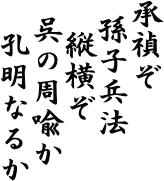 承禎ぞ
孫子兵法
縦横ぞ
呉の周喩か
孔明なるか